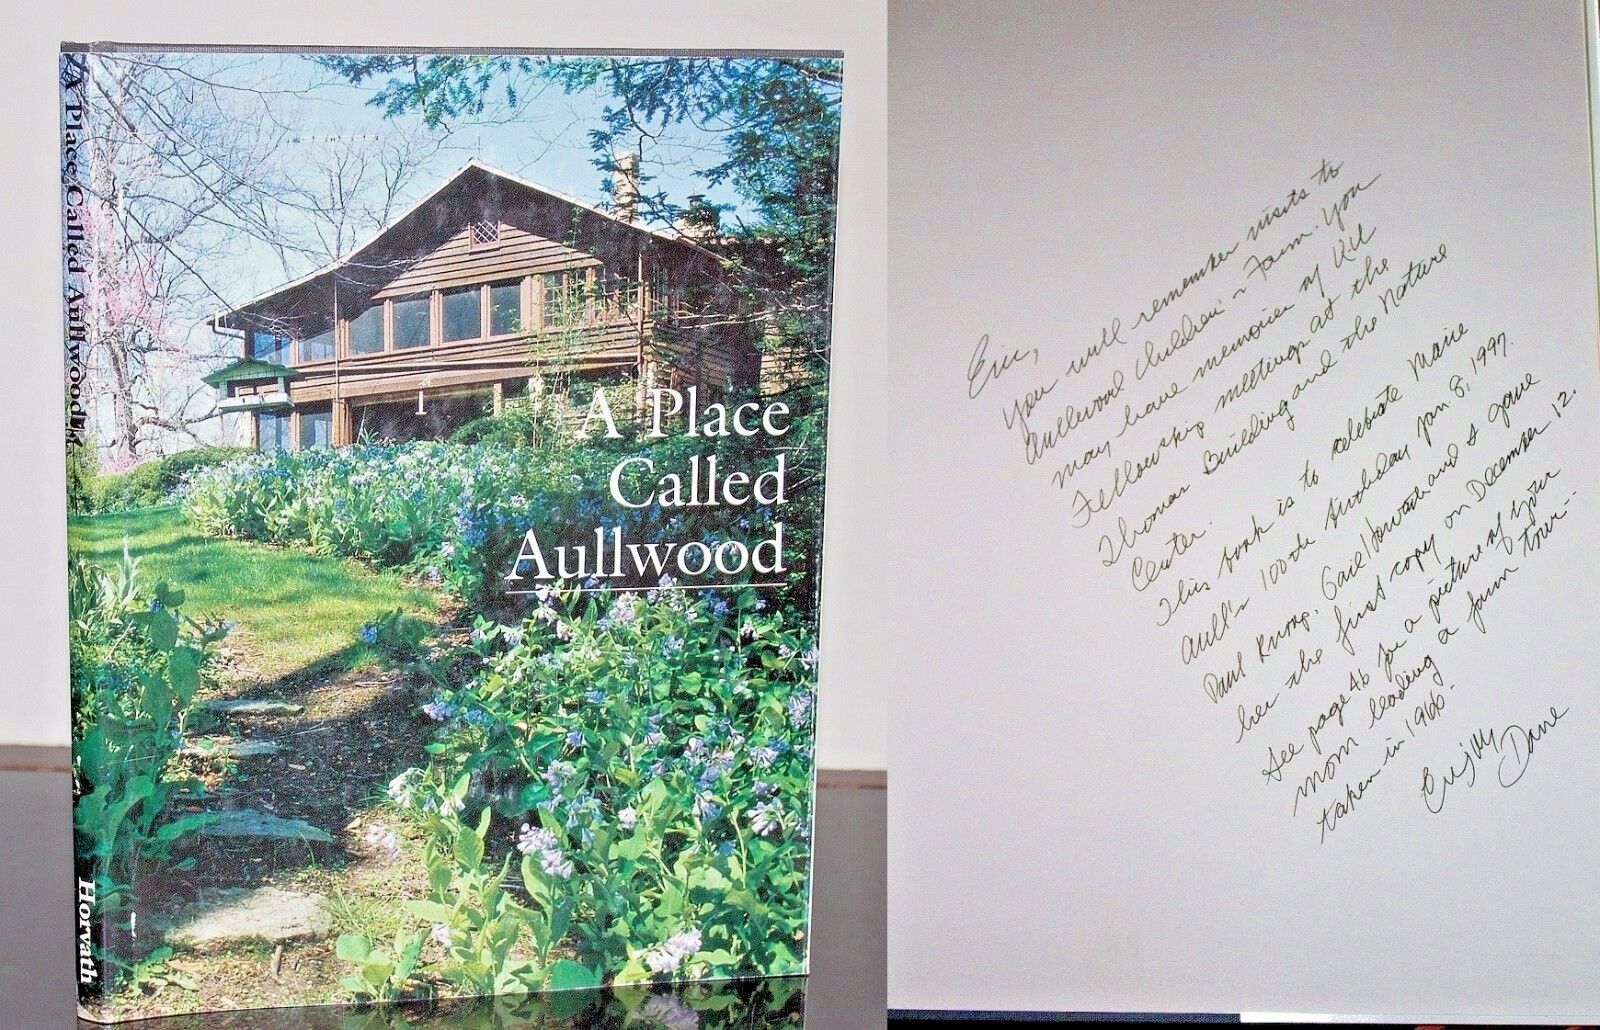 A Place Called Aullwood
Horvath
A Place
Called
Aullwood
Eric,
You will remember visits to
Aullwood Children's Farm. You
may have memories of
Fellowship meetings at the
Thomas Building and the Nature
Center.
This book is to celebrate Marie
Aull's 100th birthday Jan 8, 1997.
Paul Knoop, Gail Horvath and I gave
her the first copy on December 12.
See page 46 for a picture of your
mom leading a farm tour--
taken in 1966.
Enjoy
Dave